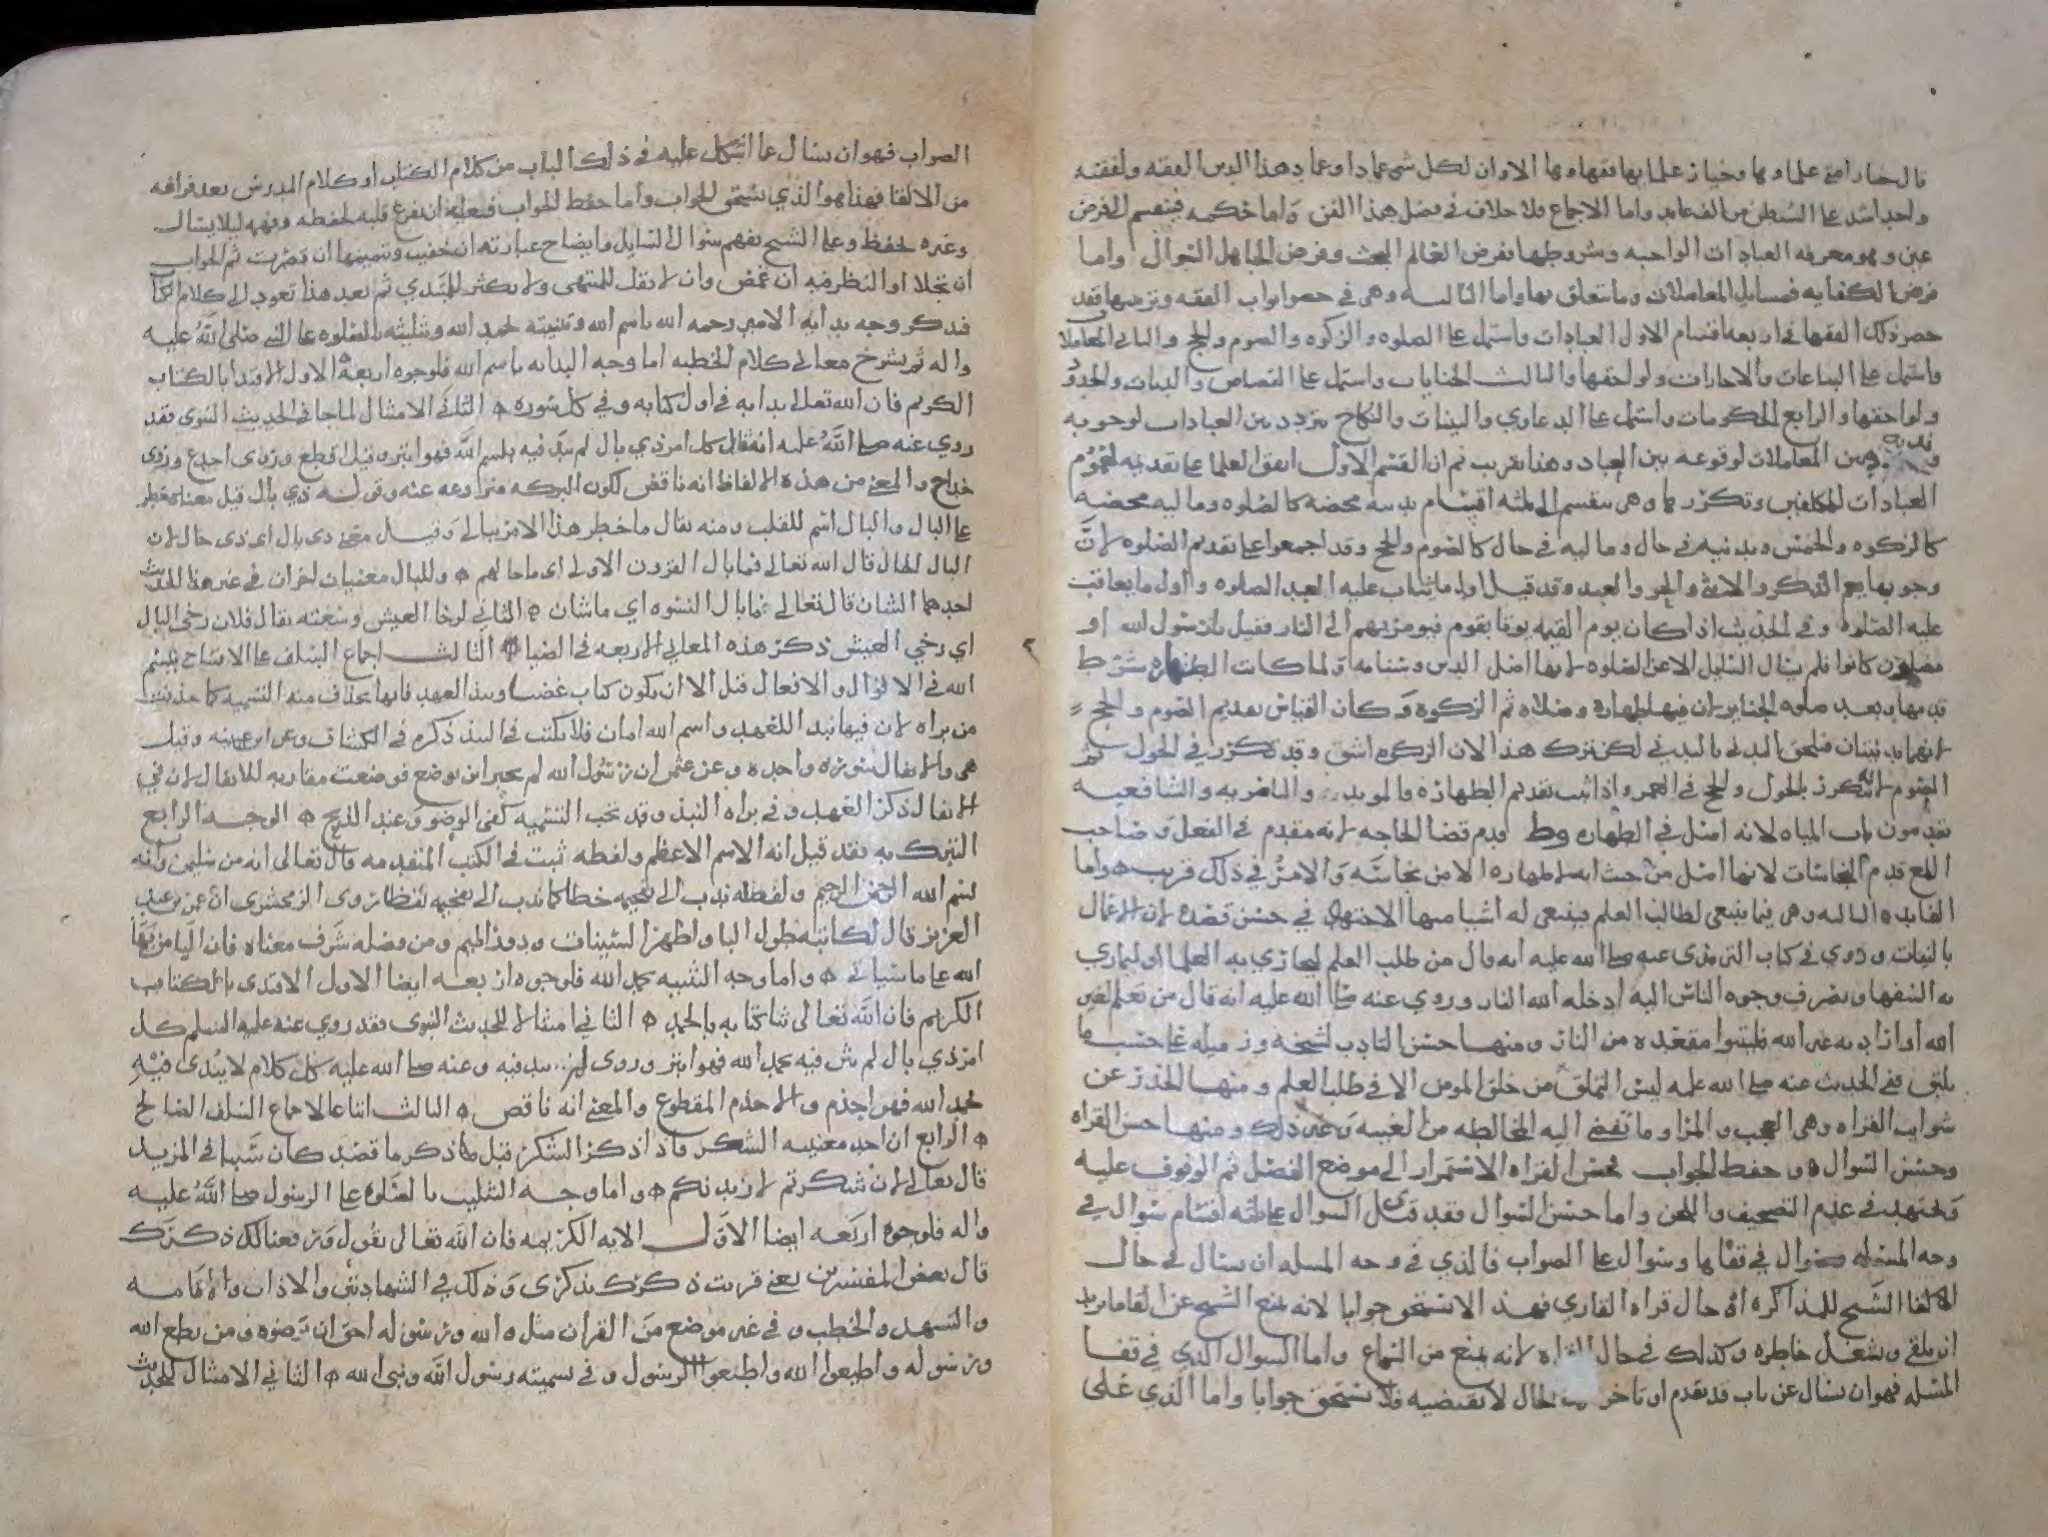 قال خيار امتي علماوها وخيار علمايها فقهاوها الا وان لكل شي عمادا وعماد هذا الدين الفقه ولفقيه
واحد اشد على الشيطن من الف عابد واما الاجماع فلا خلاف في فضل هذا الفن واما حكمه فينقسم الى فرض
عين وهو معرفه العبادات الواجبه وشروطها ففرض العالم البحث وفرض الجاهل السوال واما
فرض الكفايه فمسايل المعاملات وما يتعلق بها واما الثالثه وهي في حصر ابواب الفقه وترتيبها فقد
حصر ذلك الفقها في اربعه اقسام الاول العبادات واشتمل على الصلوه والزكوه والصوم والحج والثاني المعاملات
واشتمل على البياعات والاجارات ولواحقها والثالث الجنايات واشتمل على القصاص والديات والحدود
ولواحقها والرابع الحكومات واشتمل على الدعاوي والبينات والنكاح متردد بين العبادات لوجوبه
وبين المعاملات لوقوعه بين العباد وهذا تقريب ثم ان القسم الاول اتفق العلما على تقديمه لعموم
العبادات للمكلفين وتكررها وهي تنقسم الى ثلثه اقسام بدنيه محضه كالصلوه وماليه محضه
كالزكوه والخمس وبدنيه في حال وماليه في حال كالصوم والحج وقد اجمعوا على تقديم الصلوه لان
وجوبها يعم الذكر والانثى والحر والعبد وقد قيل اول ما يثاب عليه العبد الصلوه واول ما يعاقب
عليه الصلوه وفي الحديث اذا كان يوم القيمه يوتا بقوم فيومر بهم الى النار فقيل يا رسول الله او
مصلون كانوا فلم يسال السايل الا عن الصلوه لانها اصل الدين وسنامه ولما كانت الطهاره شرط
قدمها وبعد صلوه الجنايز لان فيها طهاره وصلاه ثم الزكوه وكان القياس تقديم الصوم والحج
لانهما بدنيتان فيلحق البدني بالبدني لكن ترك هذا لان الزكوه اشق وقد تكرر في الحول ثم
الصوم لانه يتكرر بالحول والحج في العمر واذا ثبت تقديم الطهاره فالمويد والناصريه والشافعيه
يقدمون باب المياه لانه اصل في الطهاره وط قدم قضا الحاجه لانه مقدم في الفعل وصاحب
اللمع قدم النجاسات لانها اصل من حيث انه لا طهاره الا من نجاسه والامر في ذلك قريب واما
الفايده الثالثه وهي فيما ينبغي لطالب العلم فينبغي له اشيا منها الاجتهاد في حسن قصده لان الاعمال
بالنيات وروي في كتاب الترمذي عنه صلى الله عليه انه قال من طلب العلم ليجازي به العلما او ليماري
به السفها ويصرف وجوه الناس اليه ادخله الله النار وروي عنه صلى الله عليه انه قال من تعلم لغير
الله او اراد به غير الله فليتبوا مقعده من النار ومنها حسن التادب لشيخه وزميله على حسب ما
يليق ففي الحديث عنه صلى الله عليه ليس التملق من خلق المومن الا في طلب العلم ومنها الحذر عن
شوايب القراه وهي العجب والمرا وما تفضي اليه المخالطه من الغيبه وغير ذلك ومنها حسن القراه
وحسن السوال وحفظ الجواب فحسن القراه الاستمرار الى موضع الفصل ثم الوقوف عليه
ويجتهد في عدم التصحيف واللحن واما حسن السوال فقد قيل السوال على ثلثه اقسام سوال في
وجه المسله وسوال في قفاها وسوال على الصواب فالذي في وجه المسله ان يسال في حال
القا الشيخ للمذاكره او حال قراه القاري فهذا لا يستحق جوابا لانه يمنع الشيخ عن القا ما يريد
ان يلقي ويشغل خاطره وكذلك في حال القراه لانه يمنع من السماع واما السوال الذي في قفا
المسله فهو ان يسال عن باب قد تقدم او تاخر والحال لا يقتضيه فلا يستحق جوابا واما الذي على
الصواب فهو ان يسال عما اشكل عليه في ذلك الباب من كلام الكتاب او كلام المدرس بعد فراغه
من الالقا فهذا هو الذي يستحق الجواب واما حفظ الجواب فينبغي ان يفرغ قلبه لحفظه وفهمه ليلا يسال
وغيره يحفظ وعلى الشيخ تفهم سوال السايل وايضاح عبارته ان خفيت وتتميمها ان قصرت ثم الجواب
ان تجلا او النظر فيه ان غمض وان لا يقل للمنتهي ولا يكثر للمبتدي ثم بعد هذا نعود الى كلام
فنذكر وجه بدايه الامير رحمه الله باسم الله وتثنيته بحمد الله وتثليثه بالصلوه على النبي صلى الله عليه
واله ثم نشرح معاني كلام الخطبه اما وجه البدايه باسم الله فلوجوه اربعه الاول الاقتدا بالكتاب
الكريم فان الله تعالى بدا به في اول كتابه وفي كل سوره الثاني الامتثال لما جا في الحديث النبوي فقد
روي عنه صلى الله عليه انه قال كل امر ذي بال لم يبد فيه بلسم الله فهو ابتر وقيل اقطع وروي اجدع وروي
خداج والمعنى من هذه الالفاظ انه ناقص لكون البركه منزوعه عنه وقوله ذي بال قيل معناه يخطر
على البال والبال اسم للقلب ومنه يقال ما خطر هذا الامر ببالي وقيل معنى ذي بال اي ذي حال لان
البال الحال قال الله تعالى فما بال القرون الاولى اي ما حالهم وللبال معنيان اخران في غير هذا الحديث
احدهما الشان قال تعالى ما بال النسوه اي ما شان الثاني لرخا العيش وسعته يقال فلان رخي البال
اي رخي العيش ذكر هذه المعاني الاربعه في الضيا الثالث اجماع السلف على الافتتاح ببسم
الله في الاقوال والافعال قبل الا ان يكون كتاب غضب ونبذ العهد فانها تحذف منه التسميه كما حذفت
من براه لان فيها نبذ العهد واسم الله امان فلا يكتب في النبذ ذكره في الكشاف وعن ابن عيينه وقيل
هي والانفال سوره واحده وعن عثمان ان رسول الله لم يخبر اين توضع فوضعت مقاربه للانفال لان في
الانفال ذكر العهد وفي براه النبذ وقد تجب التسميه كفي الوضو وعند الذبح الوجه الرابع
التبرك به فقد قيل انه الاسم الاعظم ولفظه ثبت في الكتب المتقدمه قال تعالى انه من سليمن وانه
بسم الله الرحمن الرحيم ولفظه ندب الى تفخيمه خطا كما ندب الى تفخيمه لفظا روى الزمخشري ان عمر بن عبد
العزيز قال لكاتبه طول البا واظهر السينات ودور الميم ومن فضله شرف معناه فان
الله على ما سياتي واما وجه التثنيه بحمد الله فلوجوه اربعه ايضا الاول الاقتدى بالكتاب
الكريم فان الله تعالى ثنا كتابه بالحمد الثاني امتثالا للحديث النبوي فقد روي عنه عليه السلم كل
امر ذي بال لم يثن فيه بحمد الله فهو ابتر وروى لم يبد فيه وعنه صلى الله عليه كل كلام لا يبدى فيه
بحمد الله فهو اجذم والاجذم المقطوع والمعنى انه ناقص الثالث اتباعا لاجماع السلف الصالح
الرابع ان احد معنييه الشكر فاذا ذكر الشكر قبل ما ذكر ما قصد كان سببا في المزيد
قال تعالى لان شكرتم لازيدنكم واما وجه التثليث بالصلوه على الرسول صلى الله عليه
واله فلوجوه اربعه ايضا الاول الايه الكريمه فان الله تعالى يقول ورفعنا لك ذكرك
قال بعض المفسرين يعني قرنت ذكرك بذكري وذلك في الشهادتين والاذان والاقامه
والتشهد والخطب وفي غير موضع من القران مثل والله ورسوله احق ان يرضوه ومن يطع الله
ورسوله واطيعوا الله واطيعوا الرسول وفي تسميته رسول الله ونبي الله الثاني الامتثال للحديث